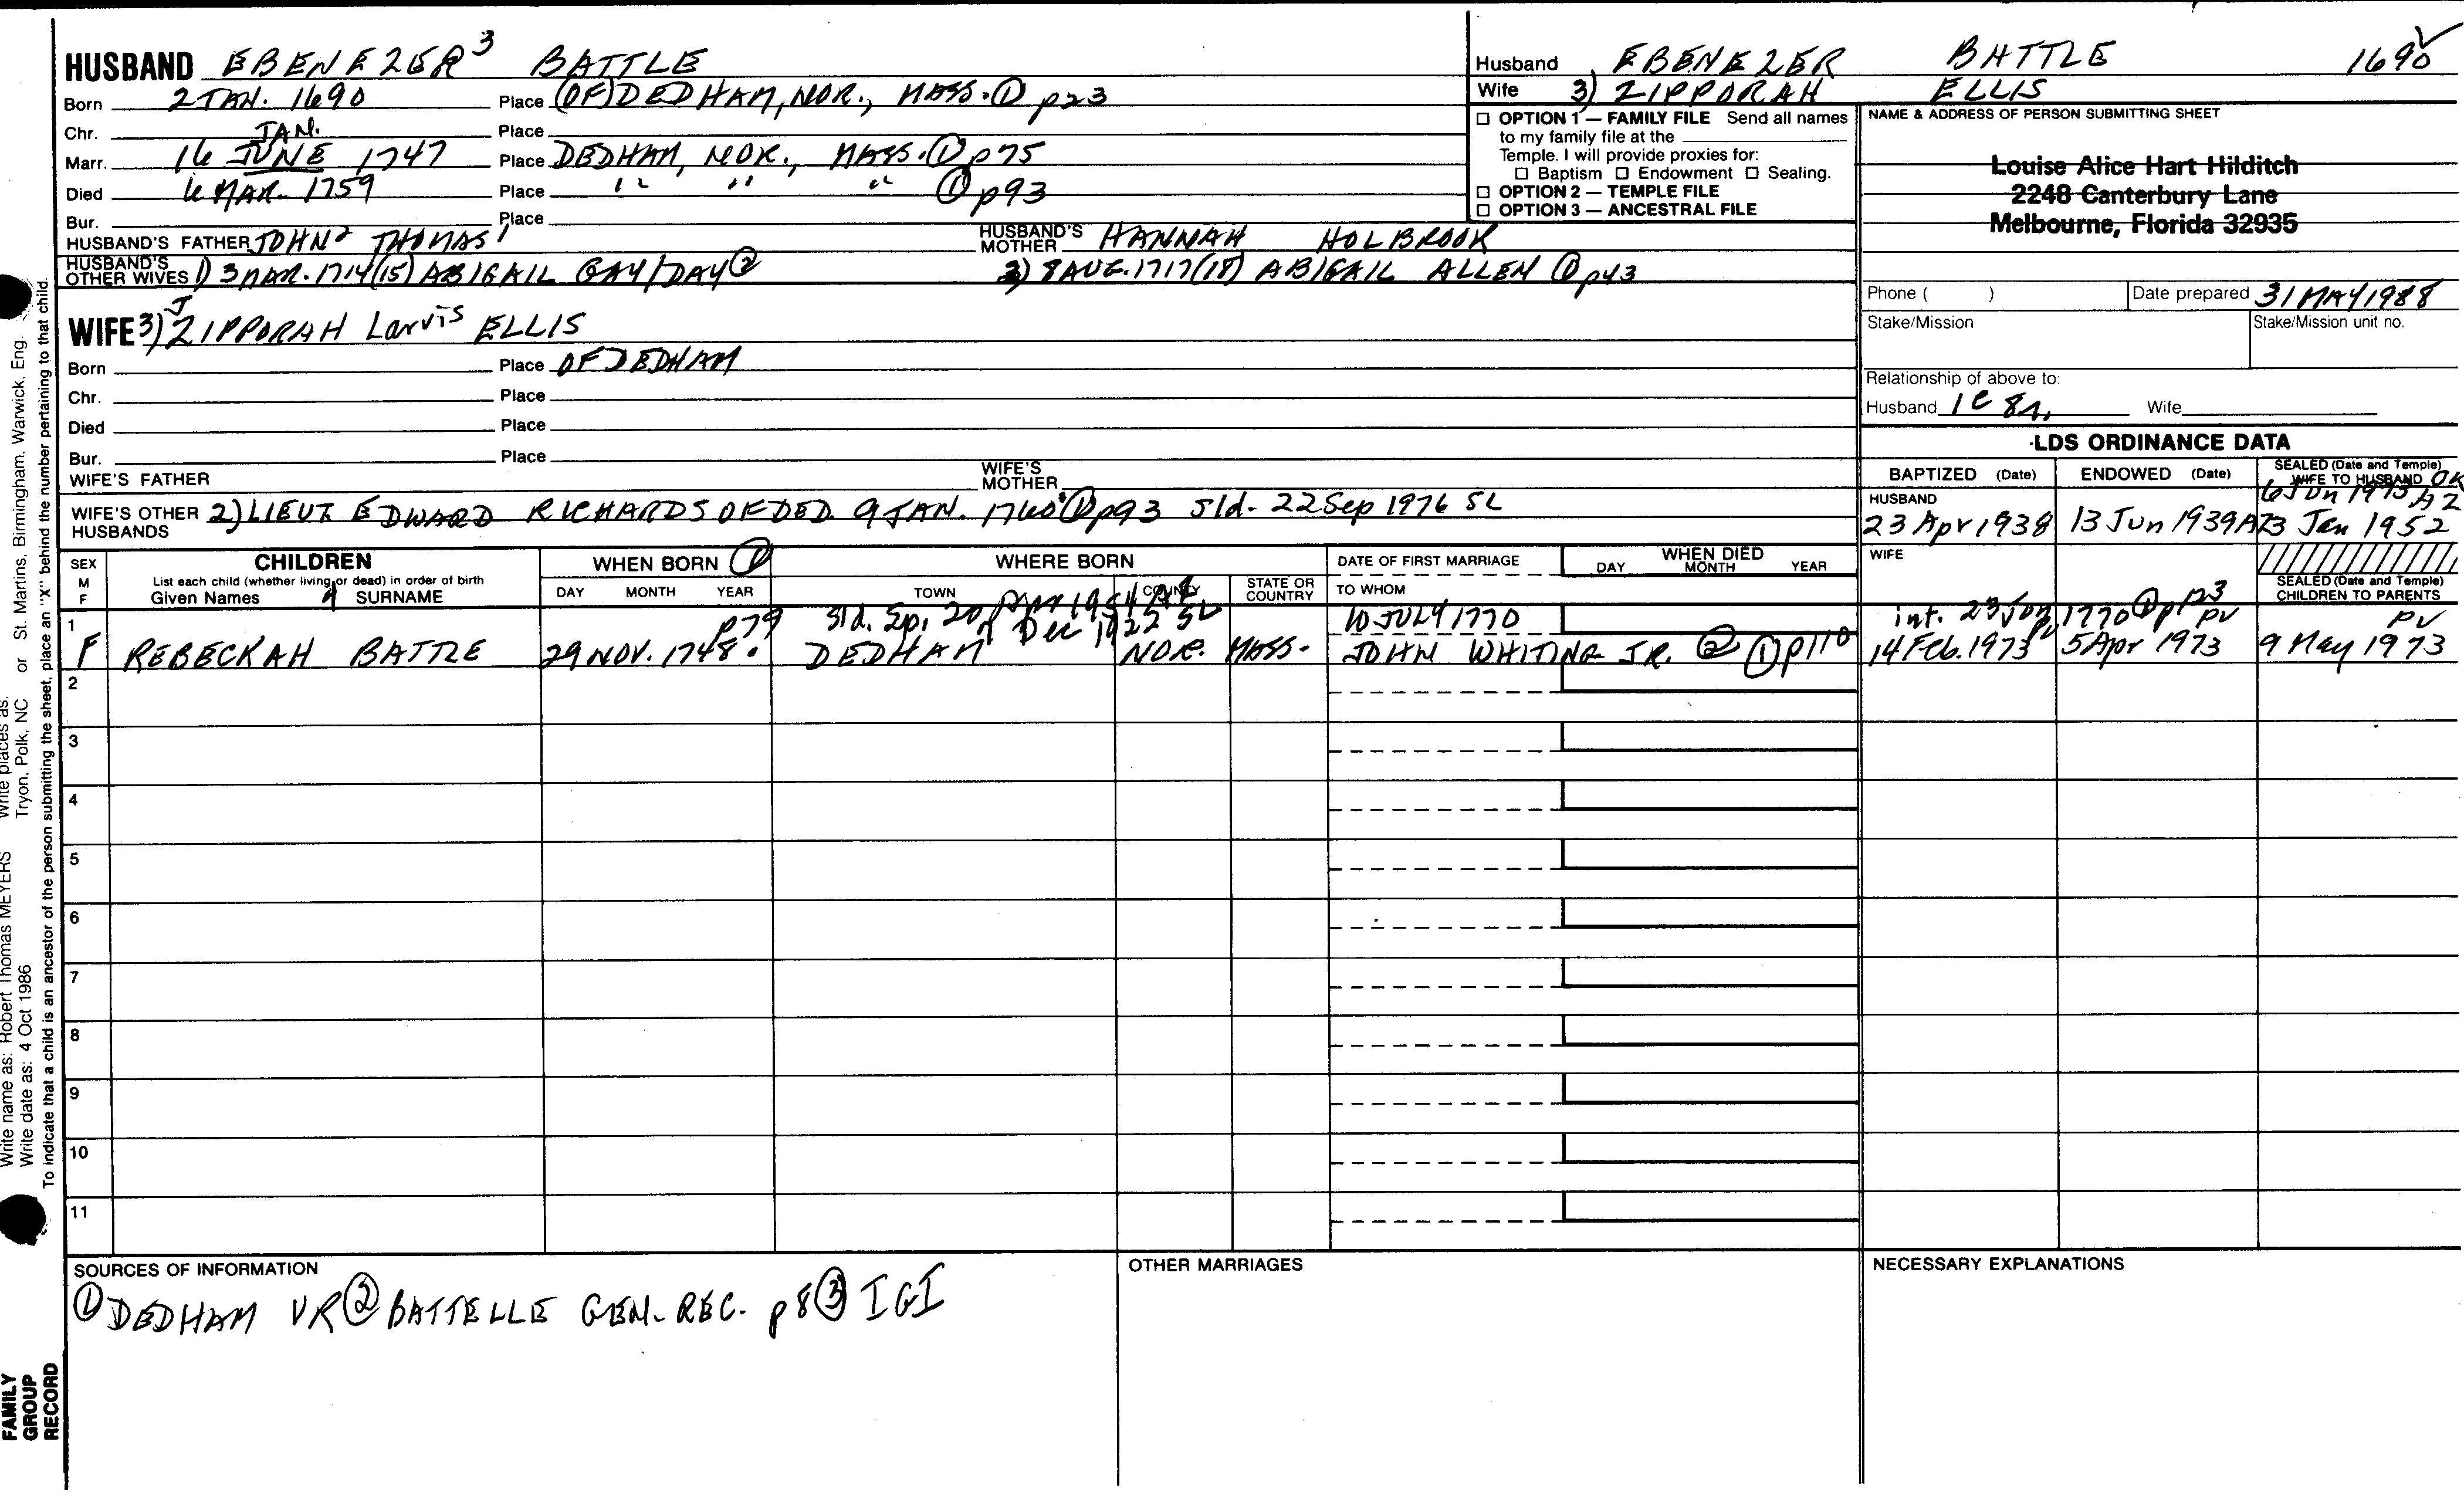 HUSBAND EBENEZER³ BATTLE
Born 2 JAN. 1690 Place (OF) DEDHAM, NOR., MASS. ① p23
Chr. Place
JAN.
Marr. 16 JUNE 1747 Place DEDHAM, NOR., MASS. ① p75
Died 6 MAR. 1759 Place " " " ① p93
Bur. Place
HUSBAND'S FATHER JOHN² THOMAS¹ HUSBAND'S MOTHER HANNAH HOLBROOK
HUSBAND'S OTHER WIVES 1) 3 MAR. 1714(15) ABIGAIL GAY/DAY ② 2) 8 AUG. 1717(18) ABIGAIL ALLEN ① p43
Husband EBENEZER BATTLE 1690
Wife 3) ZIPPORAH ELLIS
☐ OPTION 1 — FAMILY FILE Send all names
to my family file at the
Temple. I will provide proxies for:
☐ Baptism ☐ Endowment ☐ Sealing.
☐ OPTION 2 — TEMPLE FILE
☐ OPTION 3 — ANCESTRAL FILE
NAME & ADDRESS OF PERSON SUBMITTING SHEET
Louise Alice Hart Hilditch
2248 Canterbury Lane
Melbourne, Florida 32935
Phone ( ) Date prepared 31 MAY 1988
Stake/Mission Stake/Mission unit no.
Relationship of above to:
Husband 1C 8R, Wife
J
WIFE 3) ZIPPORAH Larvis ELLIS
Born Place OF DEDHAM
Chr. Place
Died Place
Bur. Place
WIFE'S FATHER WIFE'S MOTHER
WIFE'S OTHER HUSBANDS 2) LIEUT EDWARD RICHARDS OF DED. 9 JAN. 1760 ① p93 Sld. 22 Sep 1976 SL
·LDS ORDINANCE DATA
BAPTIZED (Date) ENDOWED (Date) SEALED (Date and Temple) WIFE TO HUSBAND OK
HUSBAND 6 Jun 1975 AZ
23 Apr 1938 13 Jun 1939 AZ 3 Jan 1952
WIFE
SEALED (Date and Temple) CHILDREN TO PARENTS
SEX M F CHILDREN WHEN BORN ① WHERE BORN DATE OF FIRST MARRIAGE WHEN DIED
List each child (whether living or dead) in order of birth
Given Names SURNAME DAY MONTH YEAR TOWN COUNTY STATE OR COUNTRY TO WHOM DAY MONTH YEAR
1 p79 Sld. Sp. 20 1954 AZ 10 JULY 1770 int. 23 Jun 1770 ① p123
Dec 1922 SL PV PV PV
F REBECKAH BATTLE 29 NOV. 1748. DEDHAM NOR. MASS. JOHN WHITING JR. ② ① p110 14 Feb. 1973 5 Apr 1973 9 May 1973
2
3
4
5
6
7
8
9
10
11
SOURCES OF INFORMATION OTHER MARRIAGES NECESSARY EXPLANATIONS
① DEDHAM VR ② BATTELLE GEN. REC. p8 ③ IGI
Write places as:
Tryon, Polk, NC or St. Martins, Birmingham, Warwick, Eng.
Write name as: Robert Thomas MEYERS
Write date as: 4 Oct 1986
To indicate that a child is an ancestor of the person submitting the sheet, place an "X" behind the number pertaining to that child.
FAMILY
GROUP
RECORD